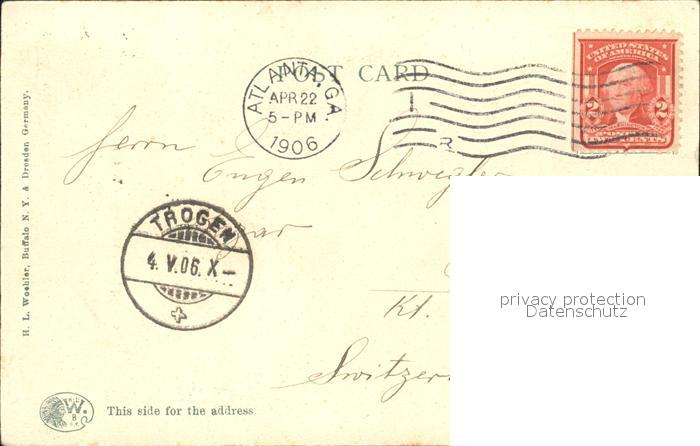 POST CARD
ATLANTA, GA.
APR 22
5-PM
1906
UNITED STATES
OF AMERICA
2 2
TWO CENTS
R
Herrn Eugen Schwegler
TROGEN
4. V. 06. X-
Kt.
Switzer
privacy protection
Datenschutz
H. L. Woehler, Buffalo N. Y. & Dresden Germany.
W.
B
This side for the address.